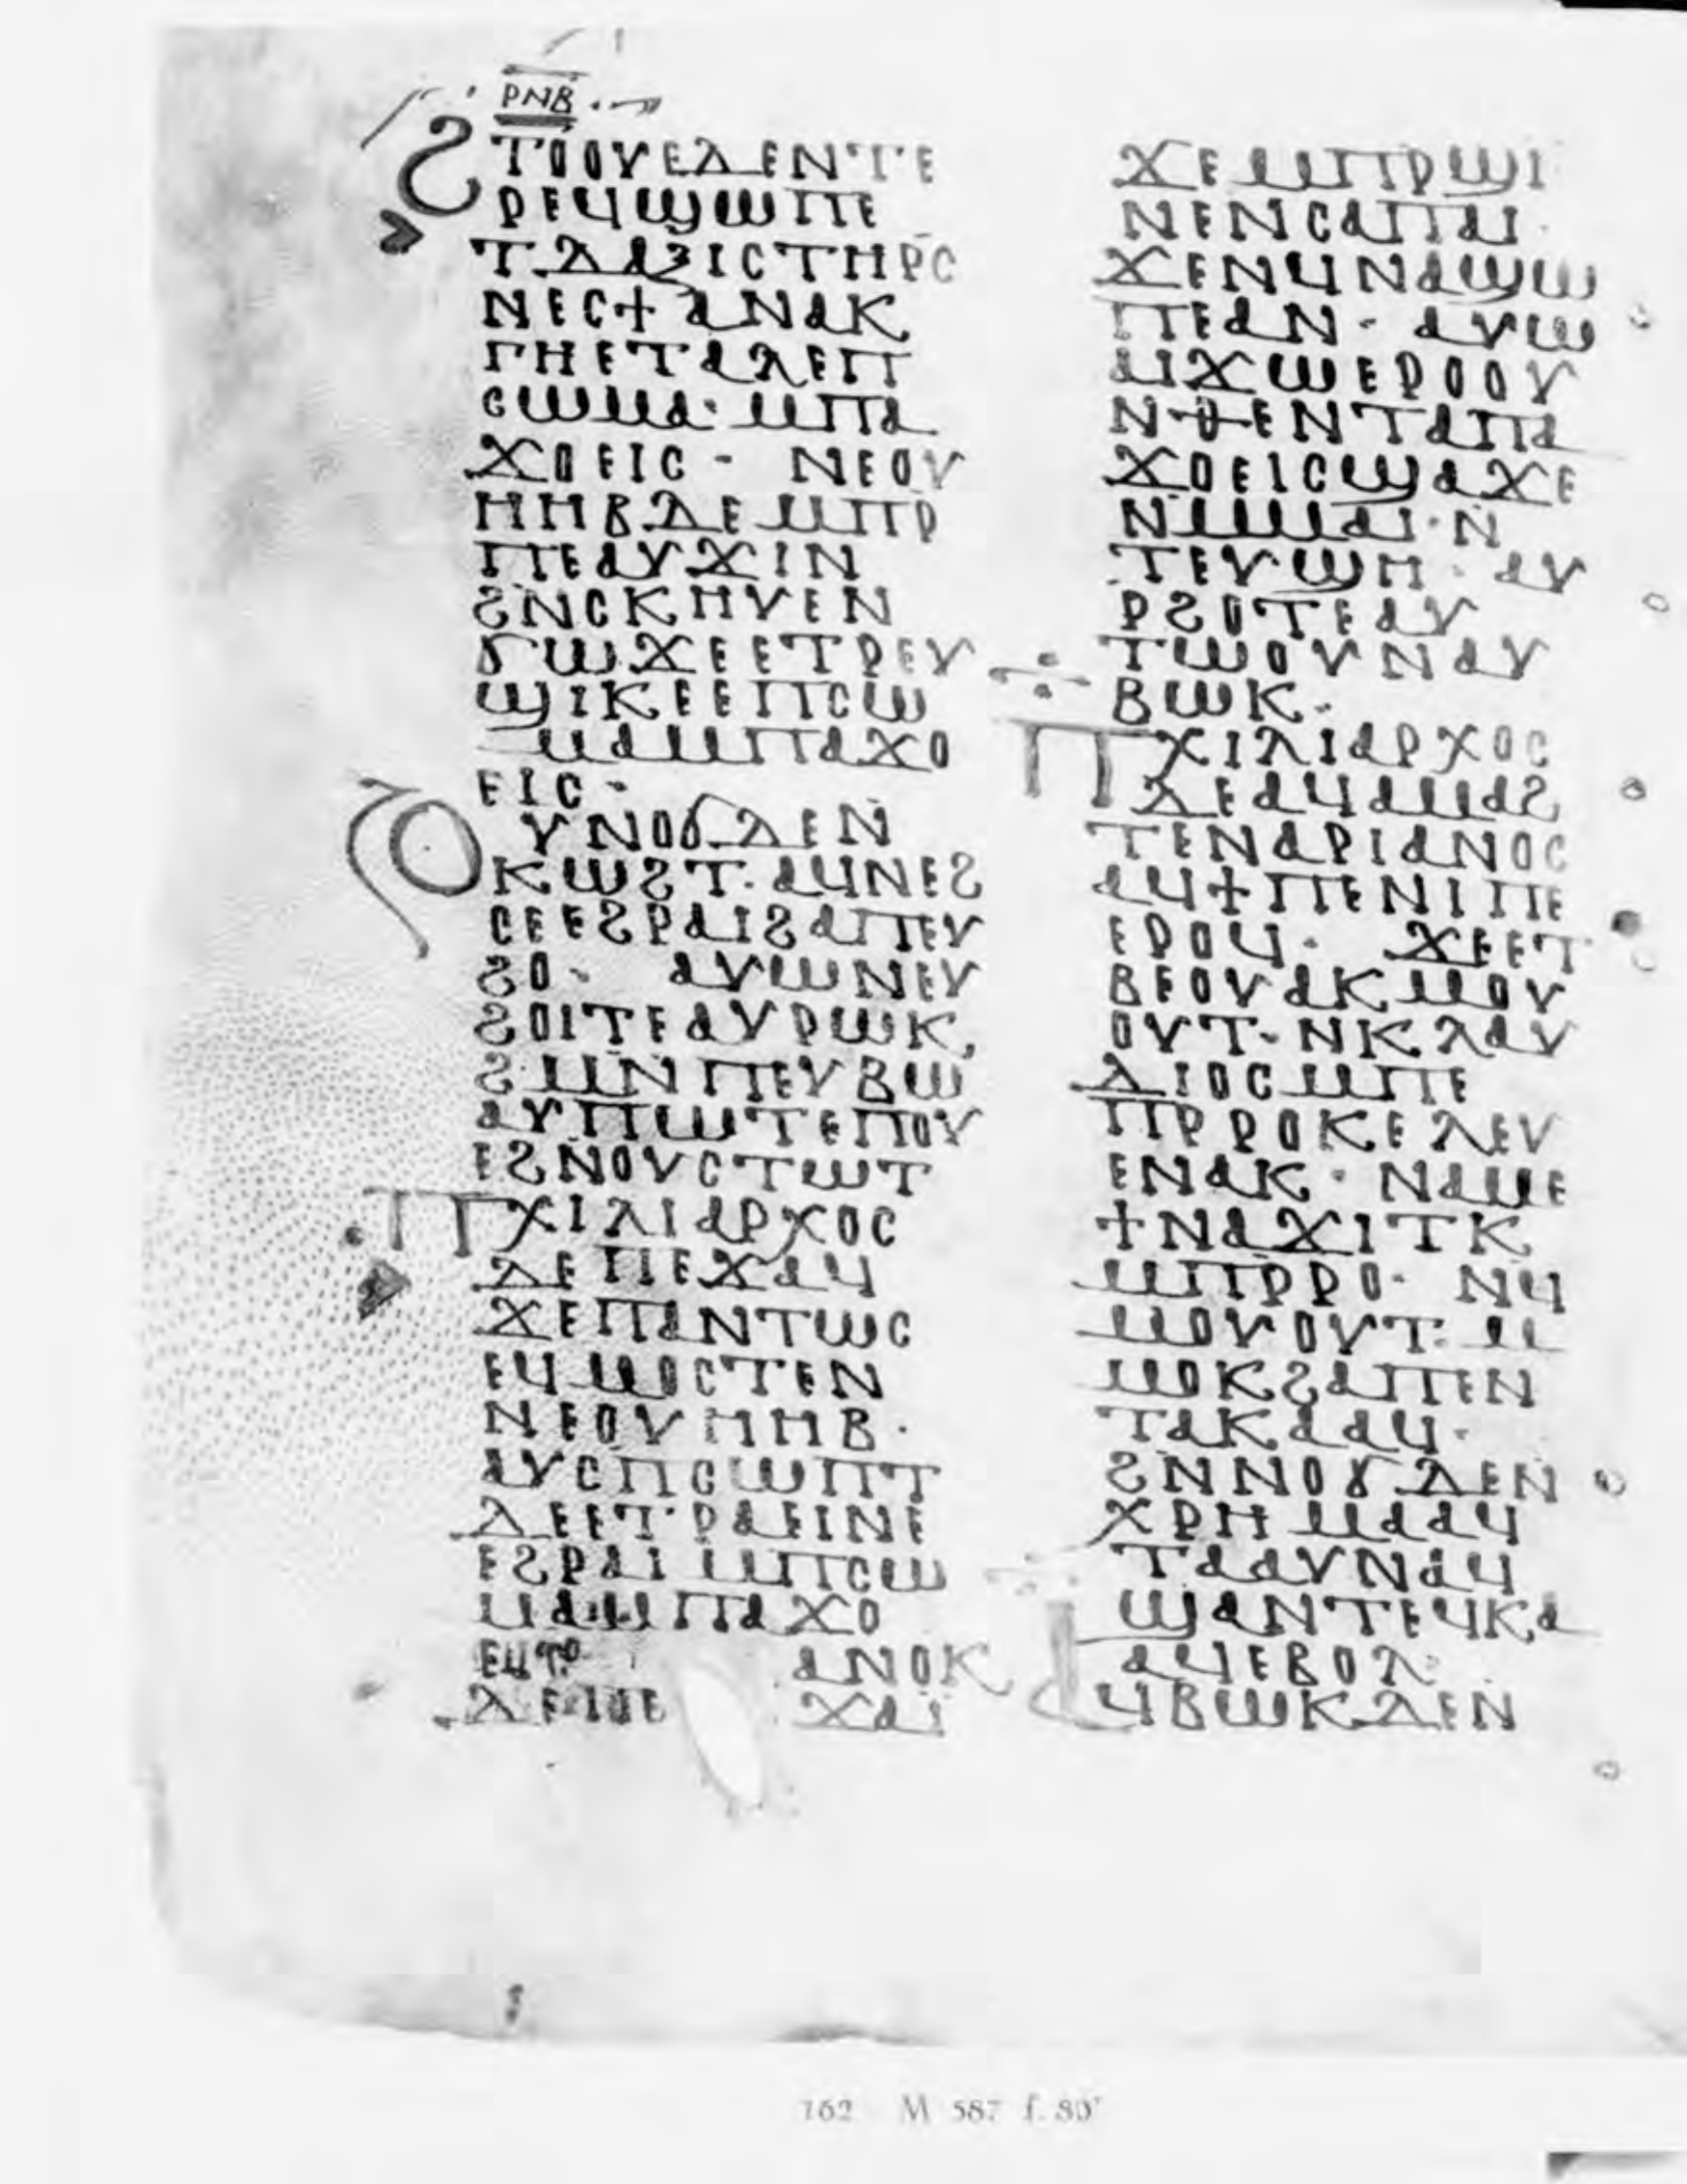 ⲢⲚⲂ
ϨⲦⲞⲞⲨⲈⲆⲈⲚⲦⲈ
ⲢⲈϤϢⲰⲠⲈ
ⲦⲆⲀⲜⲒⲤⲦⲎⲢⲤ
ⲚⲈⲤϮⲀⲚⲀⲔ
ⲄⲎⲈⲦⲀⲖⲈⲠ
ⲤⲰⲘⲀ· ⲘⲠⲀ
ϪⲞⲈⲒⲤ - ⲚⲈⲞⲨ
ⲎⲎⲂⲆⲈⲘⲠⲢ
ⲠⲈⲀⲨϪⲒⲚ
ϨⲚⲤⲔⲎⲨⲈⲚ
ϬⲰϪⲈⲈⲦⲢⲈⲨ
ϢⲒⲔⲈⲈⲠⲤⲰ
ⲘⲀⲘⲠⲀϪⲞ
ⲈⲒⲤ·
ⲞⲨⲚⲞϬⲆⲈⲚ
ⲔⲰϨⲦ· ⲀϤⲚⲈϨ
ⲤⲈⲈϨⲢⲀⲒϨⲀⲠⲈⲨ
ϨⲞ· ⲀⲨⲰⲚⲈⲨ
ϨⲞⲒⲦⲈⲀⲨⲢⲰⲔ
ϨⲘⲚⲠⲈⲨⲂⲰ
ⲀⲨⲠⲰⲦⲈⲠⲞⲨ
ⲈϨⲚⲞⲨⲤⲦⲰⲦ
ⲠⲬⲒⲖⲒⲀⲢⲬⲞⲤ
ⲆⲈⲠⲈϪⲀϤ
ϪⲈⲠⲀⲚⲦⲰⲤ
ⲈϤⲘⲞⲤⲦⲈⲚ
ⲚⲈⲞⲨⲎⲎⲂ·
ⲀⲨⲤⲠⲤⲰⲠϤ
ⲆⲈⲈⲦⲢⲀⲈⲒⲚⲈ
ⲈϨⲢⲀⲒ ⲘⲠⲤⲰ
ⲘⲀⲘⲠⲀϪⲞ
ⲀⲚⲞⲔ
ϪⲀⲒ
ϪⲈⲘⲠⲢϢⲒ
ⲚⲈⲚⲤⲀⲠⲀⲒ·
ϪⲈⲚϤⲚⲀϢⲰ
ⲠⲈⲀⲚ· ⲀⲨⲰ
ⲀⲒϪⲰⲈⲢⲞⲞⲨ
ⲚⲐⲈⲚⲦⲀⲠⲀ
ϪⲞⲈⲒⲤϢⲀϪⲈ
ⲚⲘⲘⲀⲒ· Ⲛ
ⲦⲈⲨϢⲎ· ⲀⲨ
ⲢϨⲞⲦⲈⲀⲨ
ⲦⲰⲞⲨⲚⲀⲨ
ⲂⲰⲔ·
ⲠⲬⲒⲖⲒⲀⲢⲬⲞⲤ
ⲆⲈⲀϤⲀⲘⲀϨ
ⲦⲈⲚⲀⲢⲒⲀⲚⲞⲤ
ⲀϤϮⲠⲈⲚⲒⲠⲈ
ⲈⲢⲞϤ· ϪⲈⲈⲦ
ⲂⲈⲞⲨⲀⲔⲘⲞⲨ
ⲞⲨⲦ· ⲚⲔⲖⲀⲨ
ⲆⲒⲞⲤⲘⲠⲈ
ⲠⲢⲢⲞⲔⲈⲖⲈⲨ
ⲈⲚⲀⲔ· ⲚⲀⲘⲈ
ϮⲚⲀϪⲒⲦⲔ
ⲘⲠⲢⲢⲞ· ⲚϤ
ⲘⲞⲨⲞⲨⲦ· Ⲙ
ⲘⲞⲔϨⲀⲠⲈⲚ
ⲦⲀⲔⲀⲀϤ·
ϨⲚⲚⲞϬⲆⲈⲚ
ⲬⲢⲎⲘⲀⲀϤ
ⲦⲀⲀⲨⲚⲀϤ
ϢⲀⲚⲦⲈϤⲔⲀ
ⲀϤⲈⲂⲞⲖ
ⲀϤⲂⲰⲔⲆⲈⲚ
162 M 587 f. 80ᵛ